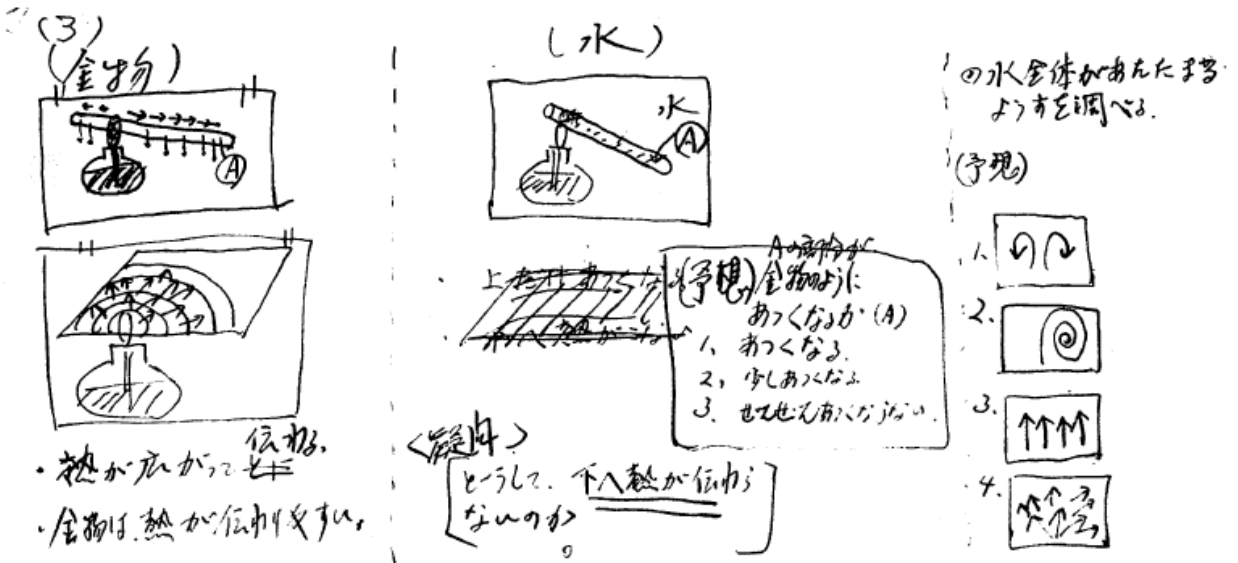 (3)
(金物)
A
・熱が広がって伝わる。
・金物は、熱が伝わりやすい。
(水)
水
A
(予想)
Aの部分が
金物のように
あつくなるか(A)
1、あつくなる。
2、少しあつくなる
3、ぜんぜんあつくならない。
<疑問>
どうして、下へ熱が伝わら
ないのか。
◎水全体があたたまる
ようすを調べる。
(予想)
1、
2、
3、
4、